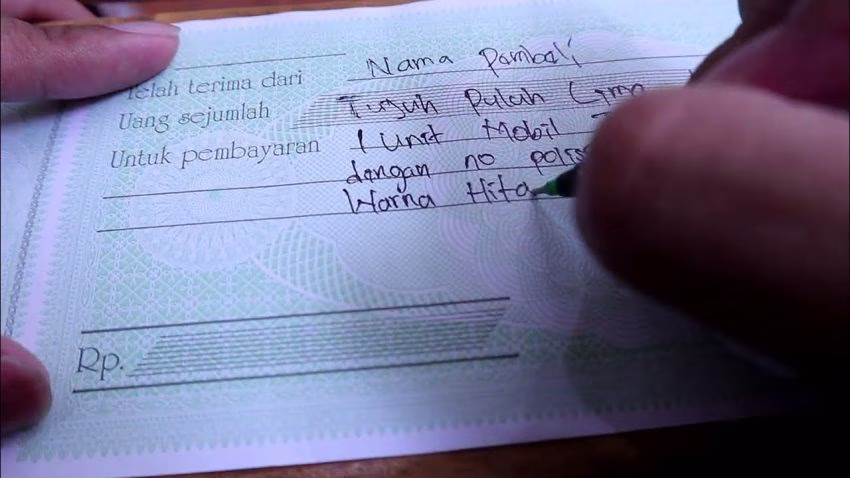 Telah terima dari Nama Pambali
Uang sejumlah Tujuh Puluh Lima
Untuk pembayaran 1 Unit Mobil
dengan no polis
Warna Hita
Rp.